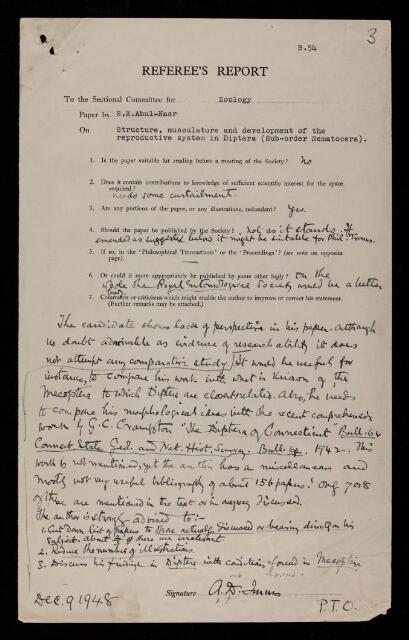 B.54
3
REFEREE'S REPORT
To the Sectional Committee for Zoology
Paper by S.K.Abul-Nasr
On Structure, musculature and development of the
reproductive system in Diptera (Sub-order Nematocera).
1. Is the paper suitable for reading before a meeting of the Society? No
2. Does it contain contributions to knowledge of sufficient scientific interest for the space
required? needs some curtailment.
3. Are any portions of the paper, or any illustrations, redundant? Yes.
4. Should the paper be published by the Society? not as it stands. If
emended as suggested below it might be suitable for Phil. Trans.
5. If so, in the 'Philosophical Transactions' or the 'Proceedings'? (see note on opposite
page).
6. Or could it more appropriately be published by some other body? On the
whole the Royal Entomological Society would be a better
body.
7. Comments or criticisms which might enable the author to improve or correct his statement.
(Further remarks may be attached.)
The candidate shows lack of perspective in his paper. Although
no doubt admirable as evidence of research ability it does
not attempt any comparative study. It would be useful for
instance, to compare his work with what is known of the
Mecoptera to which Diptera are closely related. Also, he needs
to compare his morphological ideas with the recent comprehensive
work by G.C. Crampton "The Diptera of Connecticut" Bull. 64
Connect. State Geol. and Nat. Hist. Survey. Bull. 64. 1942. This
work is not mentioned, yet the author has a miscellaneous and
mostly not very useful bibliography of about 156 papers! Only 7 or 8
of these are mentioned in the text or in any way discussed.
The author is strongly advised to:-
1. Cut down list of papers to those actually discussed or bearing directly on his
subject. About of these are irrelevant.
2. Reduce the number of illustrations.
3. Discuss his findings in Diptera with conditions found in Mecoptera
Signature A.D. Imms
Dec. 9 1948
P.T.O.